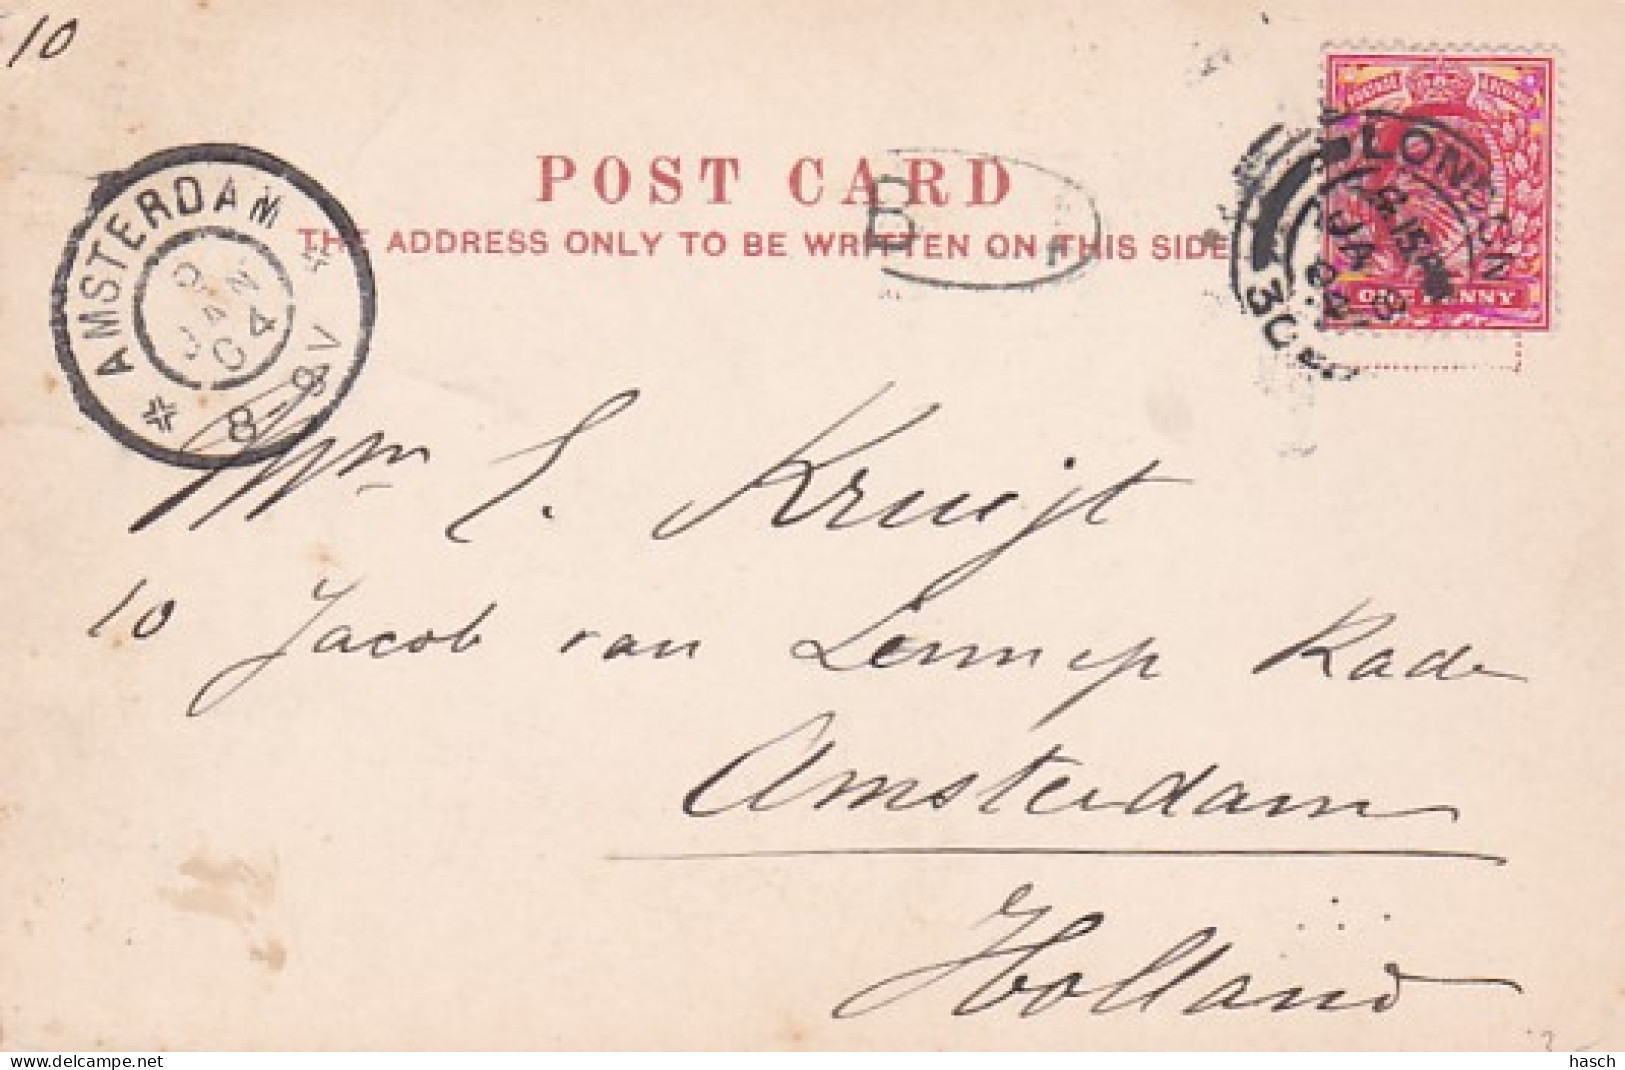 10
POSTAGE & REVENUE
ONE PENNY
LONDON
6.15 PM
JA 8
04
POST CARD
THE ADDRESS ONLY TO BE WRITTEN ON THIS SIDE
B
AMSTERDAM
9
JAN
04
8-9V
Wm E. Kruijt
10 Jacob van Lennep Kade
Amsterdam
Holland
delcampe.net
hasch